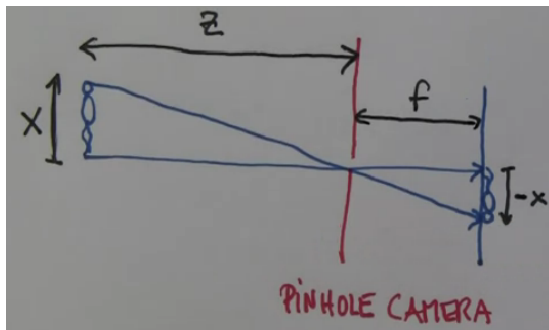 Z
f
X
-x
PINHOLE CAMERA